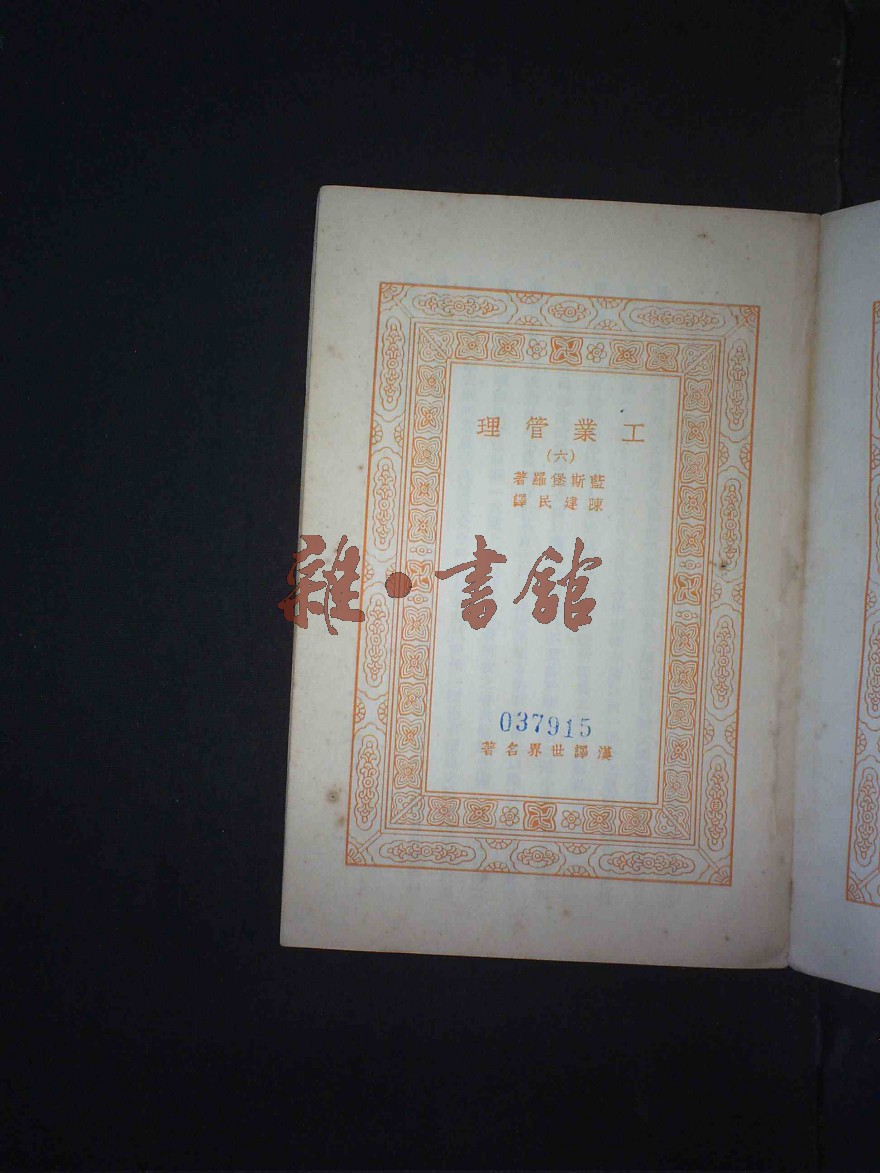 工業管理
(六)
藍斯堡羅著
陳建民譯
雜·書館
037915
漢譯世界名著